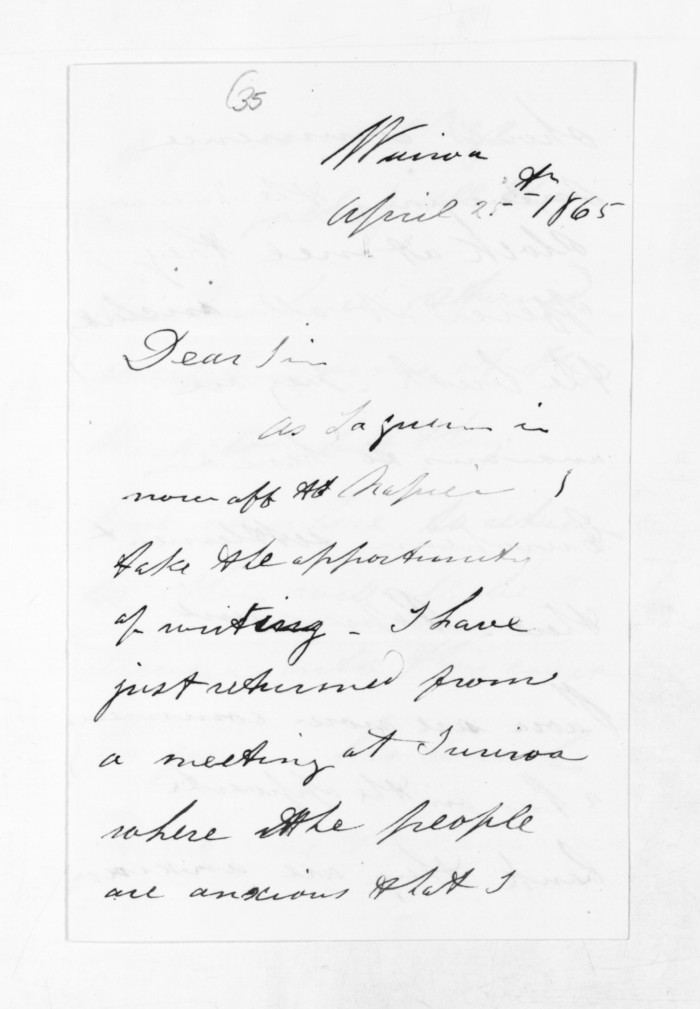 35
Wairoa
April 25th 1865
Dear Sir
As in
now off to Napier I
take the opportunity
of writing - I have
just returned from
a meeting at
where the people
are anxious that I